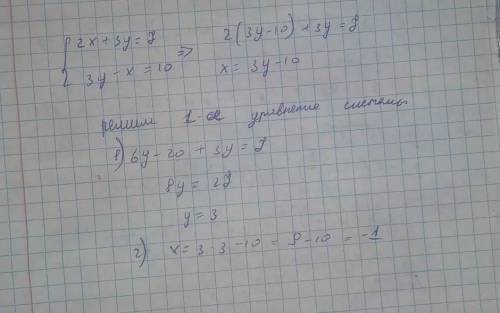 { 2x + 3y = 7 => 2(3y-10) + 3y = 7
3y - x = 10 x = 3y - 10
решим 1-ое уравнение системы
1) 6y - 20 + 3y = 7
9y = 27
y = 3
2) x = 3·3 - 10 = 9 - 10 = -1